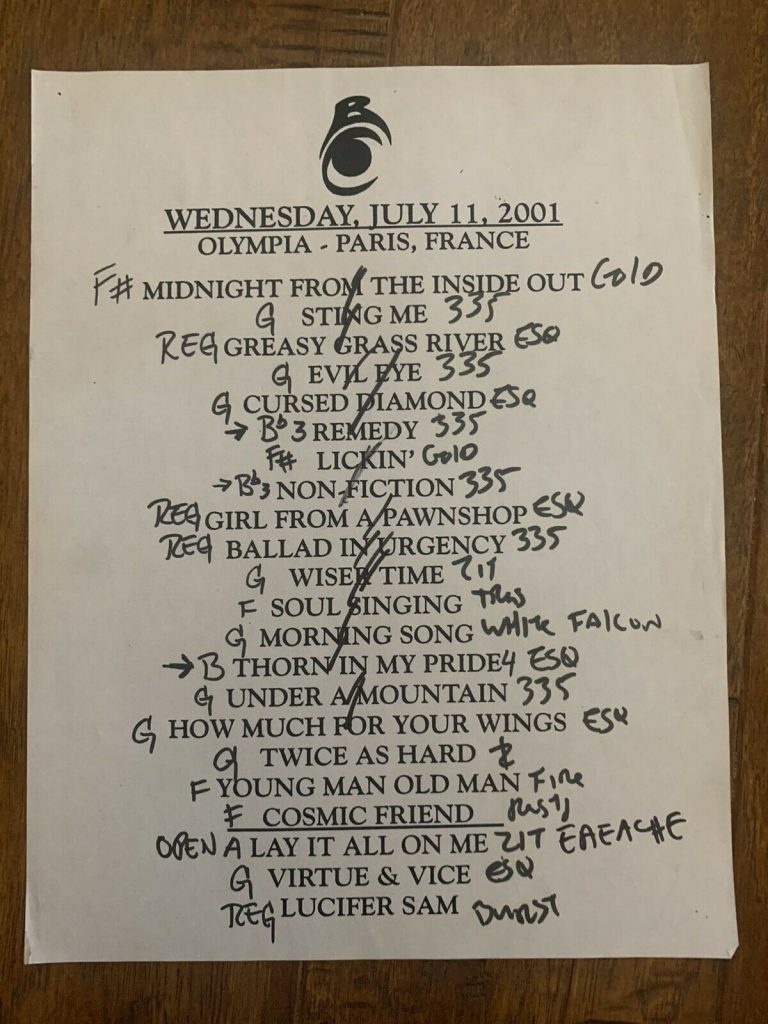 B
WEDNESDAY, JULY 11, 2001
OLYMPIA - PARIS, FRANCE
F# MIDNIGHT FROM THE INSIDE OUT GOLD
G STING ME 335
REG GREASY GRASS RIVER ESQ
G EVIL EYE 335
G CURSED DIAMOND ESQ
→ Bb 3 REMEDY 335
F# LICKIN' GOLD
→ Bb 3 NON-FICTION 335
REG GIRL FROM A PAWNSHOP ESQ
REG BALLAD IN URGENCY 335
G WISER TIME ZIT
F SOUL SINGING
G MORNING SONG WHITE FALCON
→ B THORN IN MY PRIDE 4 ESQ
G UNDER A MOUNTAIN 335
G HOW MUCH FOR YOUR WINGS ESQ
G TWICE AS HARD
F YOUNG MAN OLD MAN FIRE
F COSMIC FRIEND
OPEN A LAY IT ALL ON ME ZIT
G VIRTUE & VICE ESQ
REG LUCIFER SAM BURST